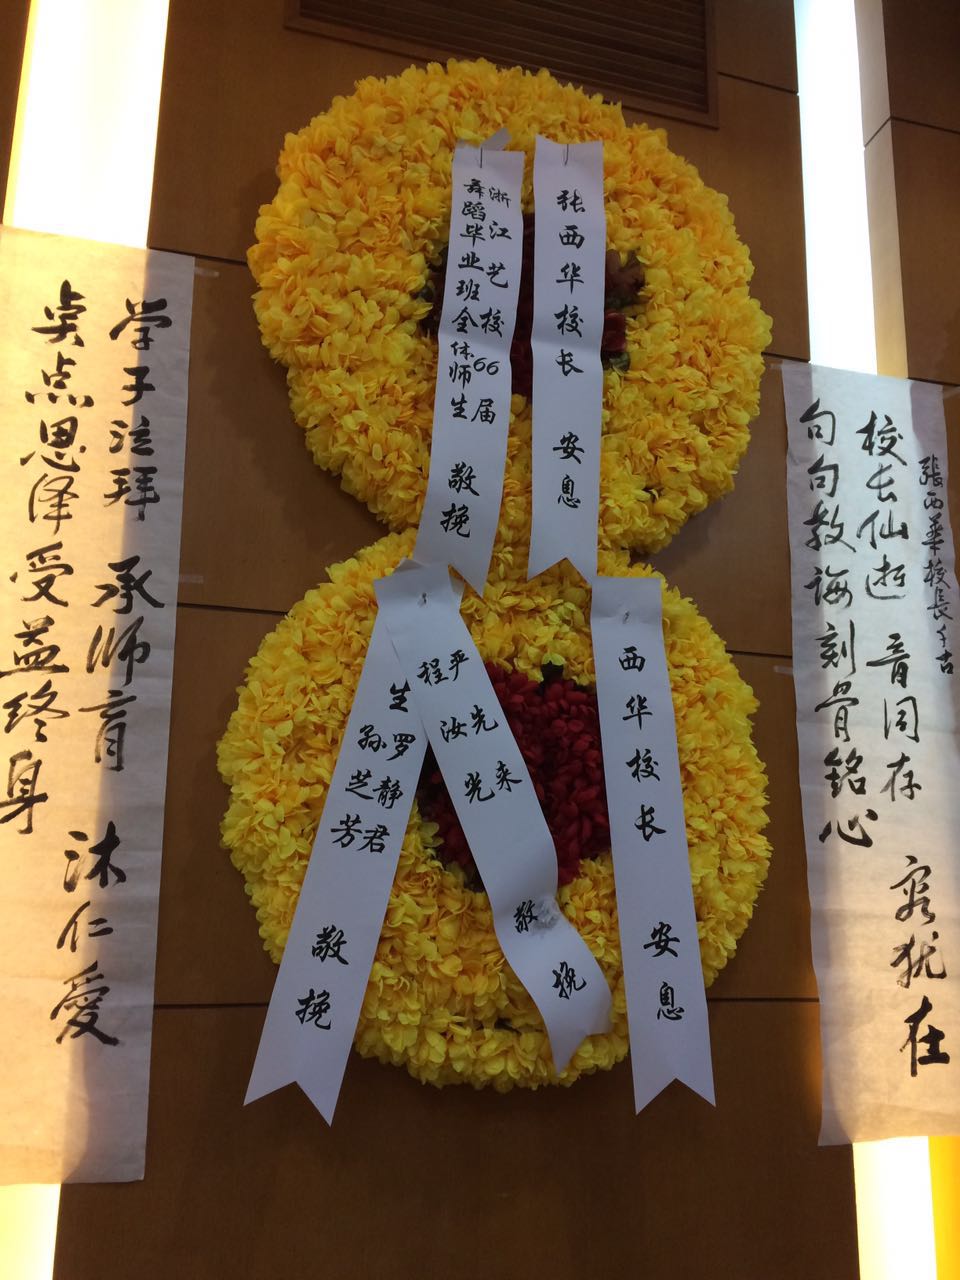 張西華校長千古
校长仙逝 音同存 容犹在
句句教诲刻骨銘心
张西华校长 安息
浙江艺校66届
舞蹈毕业班全体师生 敬挽
西华校长 安息
严先来
程汝光 敬挽
生 罗静君
孙芝芳 敬挽
学子泣拜 承师育 沐仁愛
奌点恩泽受益终身